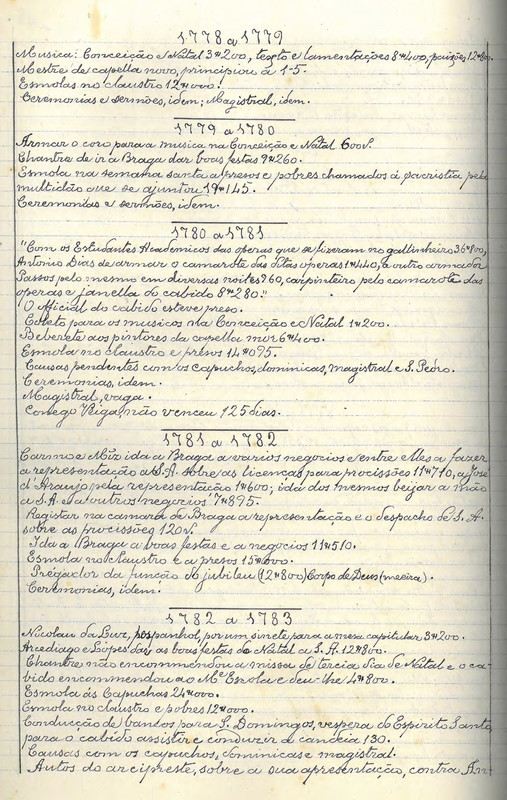 1778 a 1779
Musica: Conceição e Natal 3#200, texto e lamentações 8#400, paixões 12#800.
Mestre de capella novo, principiou a 1-5.
Esmolas no claustro 12#000.
Ceremonias e sermões, idem; Magistral, idem.
1779 a 1780
Armar o coro para a musica na Conceição e Natal 600rs.
Chantre de ir a Braga dar boas festas 9#260.
Esmola na semana santa a presos e pobres chamados á sacristia pela
multidão que se ajuntou 19#145.
Ceremonias e sermões, idem.
1780 a 1781
"Com os Estudantes Academicos das operas que se fizeram no gallinheiro 36#800,
Antonio Dias de armar o camarote das ditas operas 1#440, a outro armador
Passos pelo mesmo em diversas noites 960, carpinteiro pelo camarote das
operas e janella do cabido 8#280."
O Official do cabido esteve preso.
Coreto para os musicos na Conceição e Natal 1#200.
Beberete aos pintores da capella mór 6#400.
Esmola no claustro e presos 14#095.
Causas pendentes com os capuchos, dominicas, magistral e S. Pedro.
Ceremonias, idem.
Magistral, vaga.
Conego Veiga, não venceu 125 dias.
1781 a 1782
Carmo e Miz ida a Braga a varios negocios e entre elles a fazer
a representação a S. A. sobre as licenças para procissões 11#710, a José
d'Araujo pela representação 1#600; ida dos mesmos beijar a mão
a S. A. e a outros negocios 7#895.
Registar na camara de Braga a representação e o despacho de S. A.
sobre as procissões 120rs.
Ida a Braga a boas festas e a negocios 11#510.
Esmola no claustro e a presos 15#000.
Prégador da funcção do jubileu (12#800) Corpo de Deus (meeira).
Ceremonias, idem.
1782 a 1783
Nicolau da Luz, hespanhol, por um sinete para a mesa capitular 3#200.
Arcediago e Lopes dar as boas festas do Natal a S. A. 12#800.
Chantre não encommendou a missa de tercia dia de Natal e o ca-
bido encommendou ao Me Escola e deu-lhe 4#800.
Esmola ás Capuchas 24#000.
Esmola no claustro e pobres 12#000.
Conducção de bancos para S. Domingos, vespera do Espirito Santo,
para o cabido assistir e conduzir a candeia 130.
Causas com os capuchos, dominicas e magistral.
Autos do arcipreste, sobre a sua apresentação, contra An-